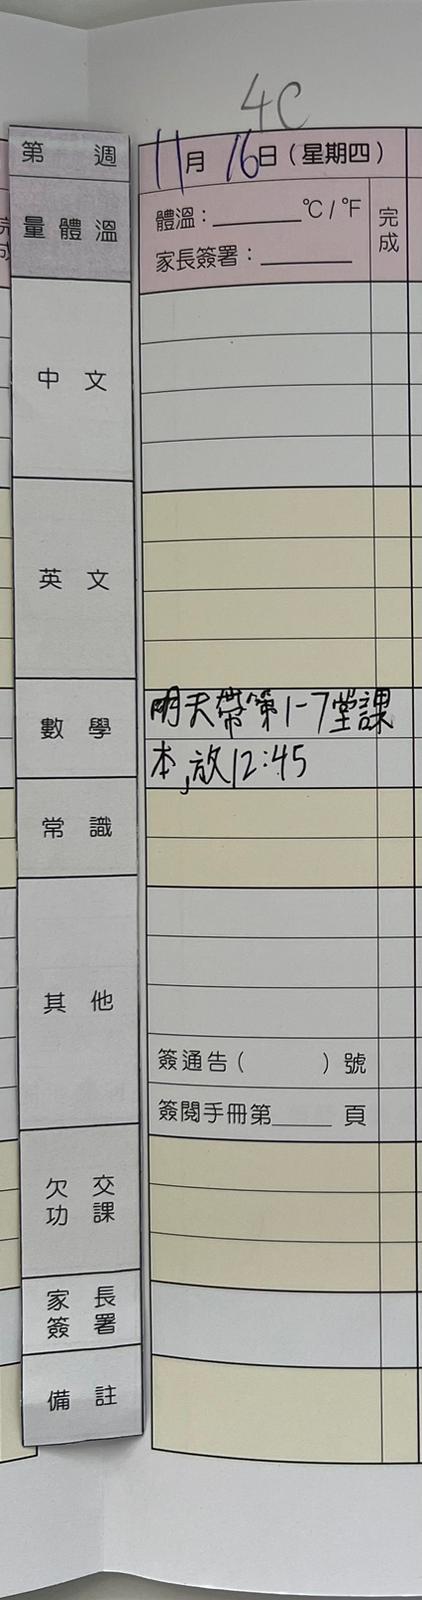 4C
第 週
11月16日(星期四)
量體溫
體溫:______°C / °F
完成
家長簽署:______
中文
英文
數學
明天帶第1-7堂課
本,放12:45
常識
其他
簽通告( )號
簽閱手冊第____頁
欠交功課
家長簽署
備註